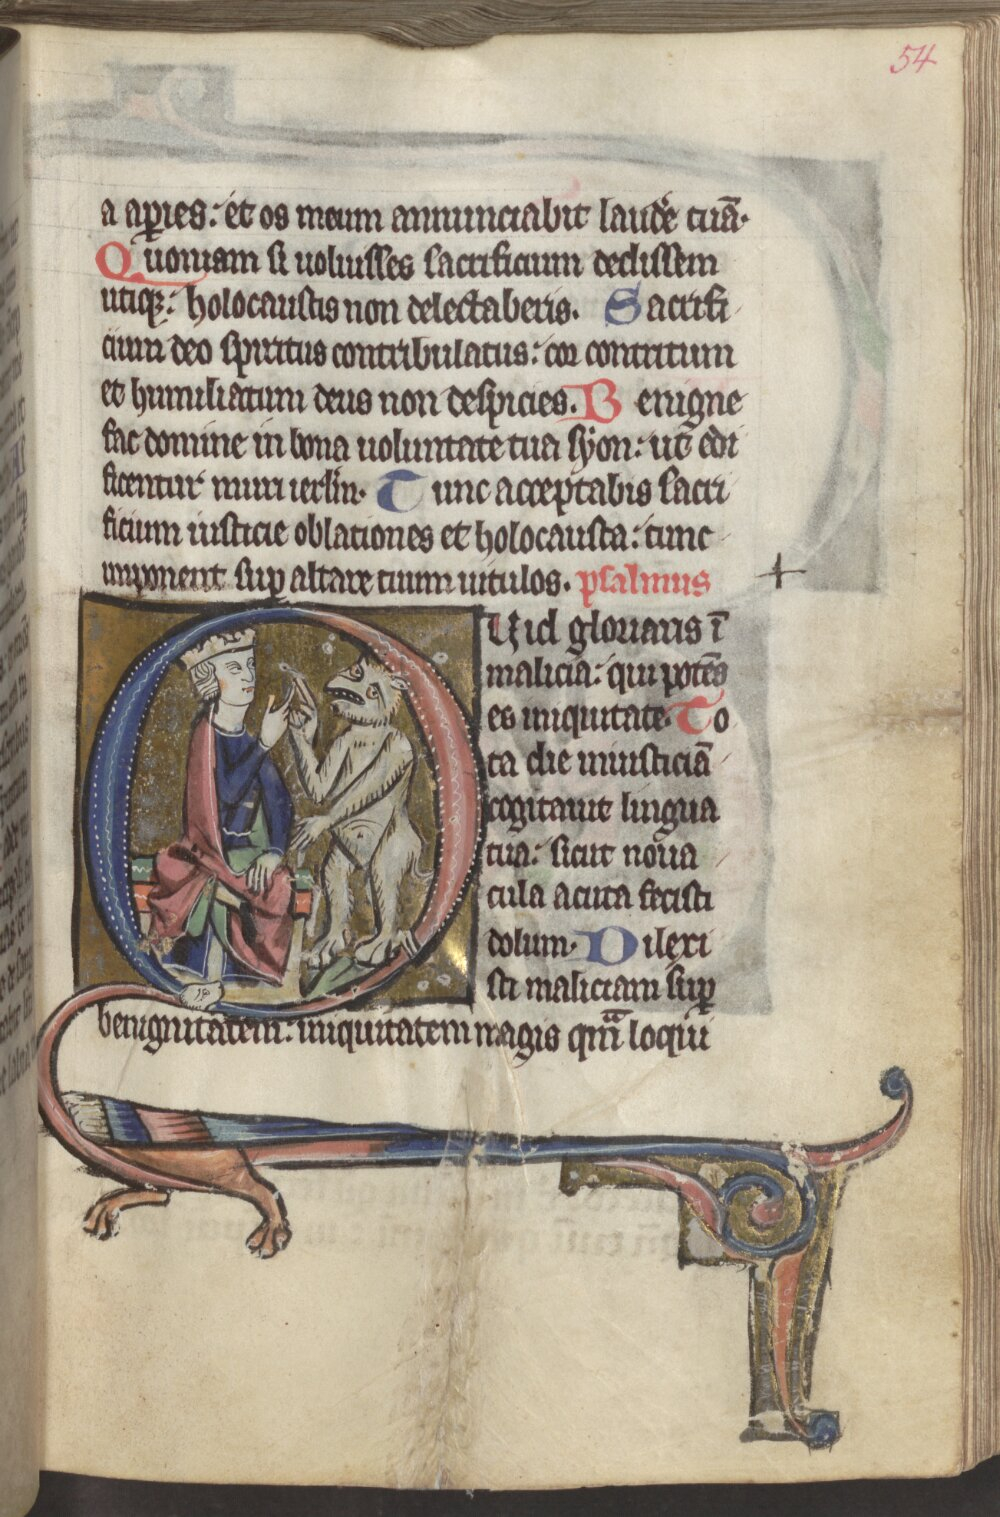 54
a aꝑies: et os meum annunciabit laudē tuā.
Quoniam si uoluisses sacrificium dedissem
utiqꝫ: holocaustis non delectaberis. Sacrifi
cium deo spiritus contribulatus: cor contritum
et humiliatum deus non despicies. Benigne
fac domine in bona uoluntate tua syon: ut edi
ficentur muri ierl̄m. Tunc acceptabis sacri
ficium iusticie oblationes et holocausta: tunc
imponent suꝑ altare tuum uitulos. psalmus
Quid gloriaris ī
malicia: qui potēs
es iniquitate. To
ta die iniusticiā
cogitauit lingua
tua: sicut noua
cula acuta fecisti
dolum. Dilexi
sti maliciam suꝑ
benignitatem: iniquitatem magis qᵃm loqui